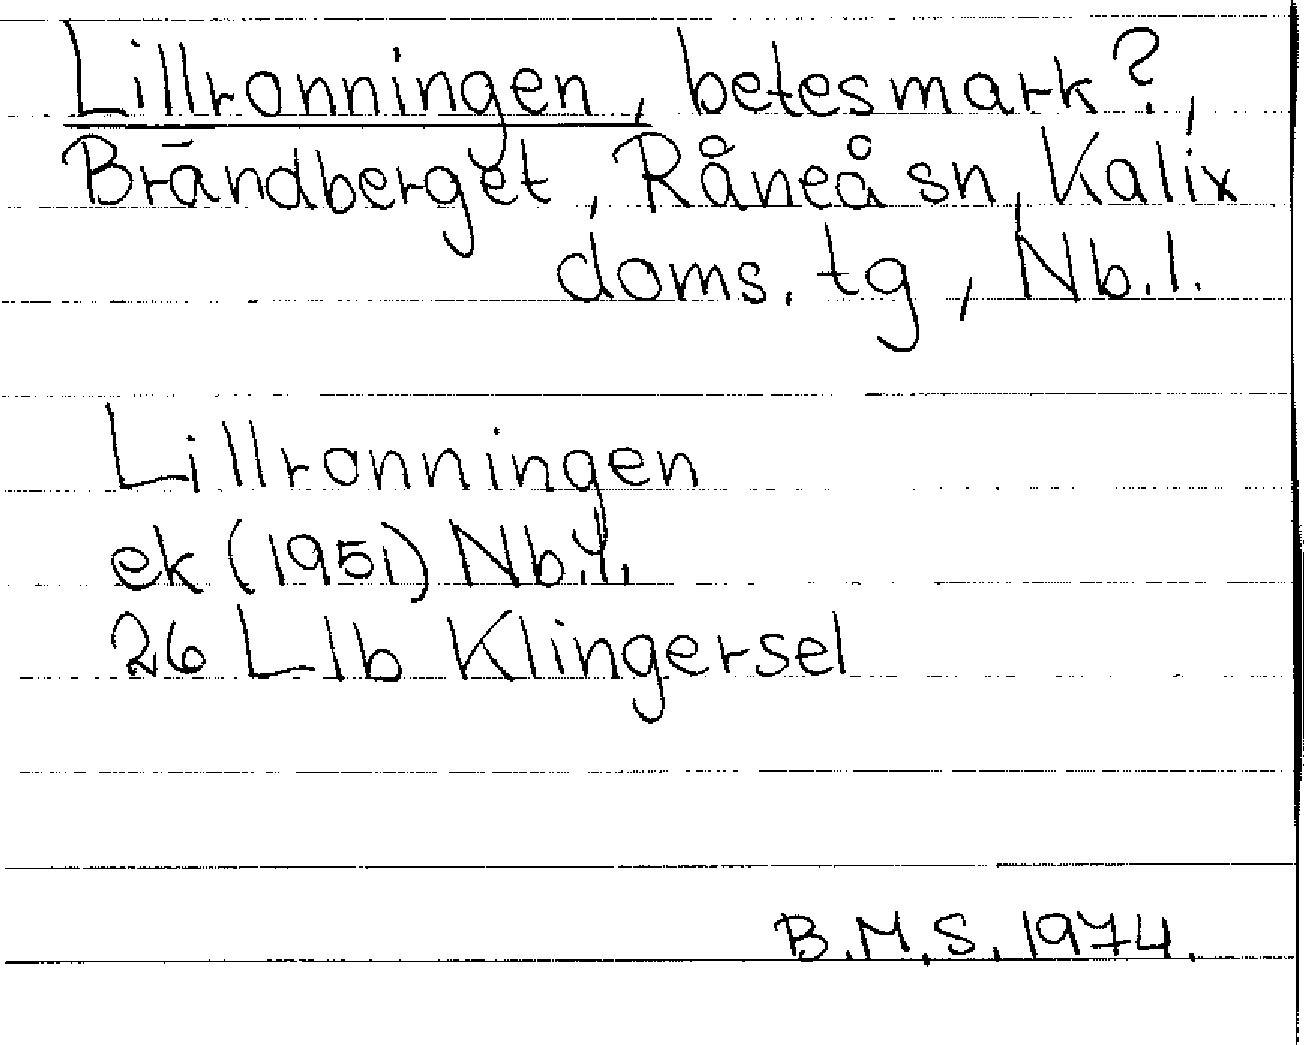 Lillronningen, betesmark?,
Brändberget, Råneå sn, Kalix
doms. tg, Nb. l.
Lillronningen
ek (1951) Nb. l.
26 L lb Klingersel
B.M.S. 1974.